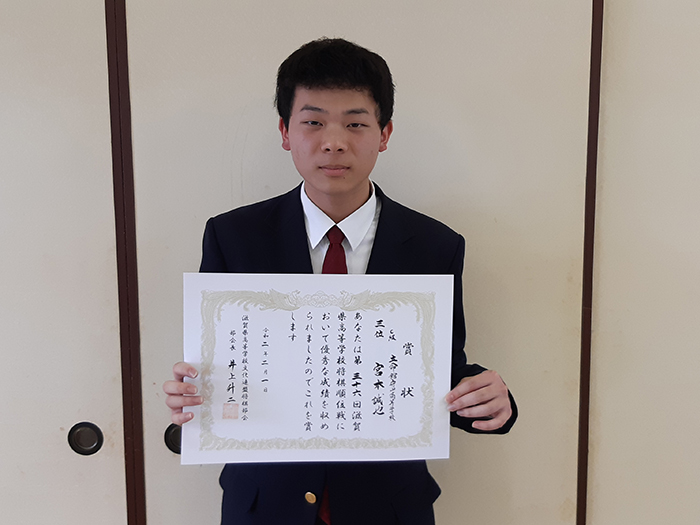 賞状
立命館守山高等学校
三位 C級 宮本誠也
あなたは第三十六回滋賀
県高等学校将棋順位戦に
おいて優秀な成績を収め
られましたのでこれを賞
します
令和二年二月一日
滋賀県高等学校文化連盟将棋部会
部会長 井上升二